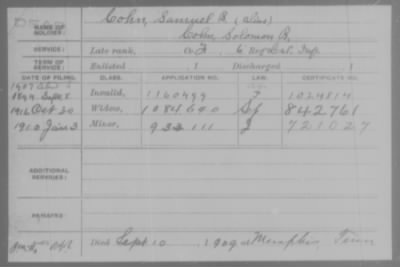 NAME OF SOLDIER: Cohn, Samuel B. (alias)
Cohn, Solomon B.
SERVICE: Late rank, Co. F 6 Reg't Inf.
TERM OF SERVICE: Enlisted , 1 Discharged , 1
DATE OF FILING. CLASS. APPLICATION NO. LAW. CERTIFICATE NO.
1899 Sept 8 Invalid, 1160499 1024814
1916 Oct 20 Widow, 1084640 842761
1910 Jan 3 Minor, 932111 721027
ADDITIONAL SERVICES:
REMARKS:
Died Sept. 10, 1909 at Memphis Tenn